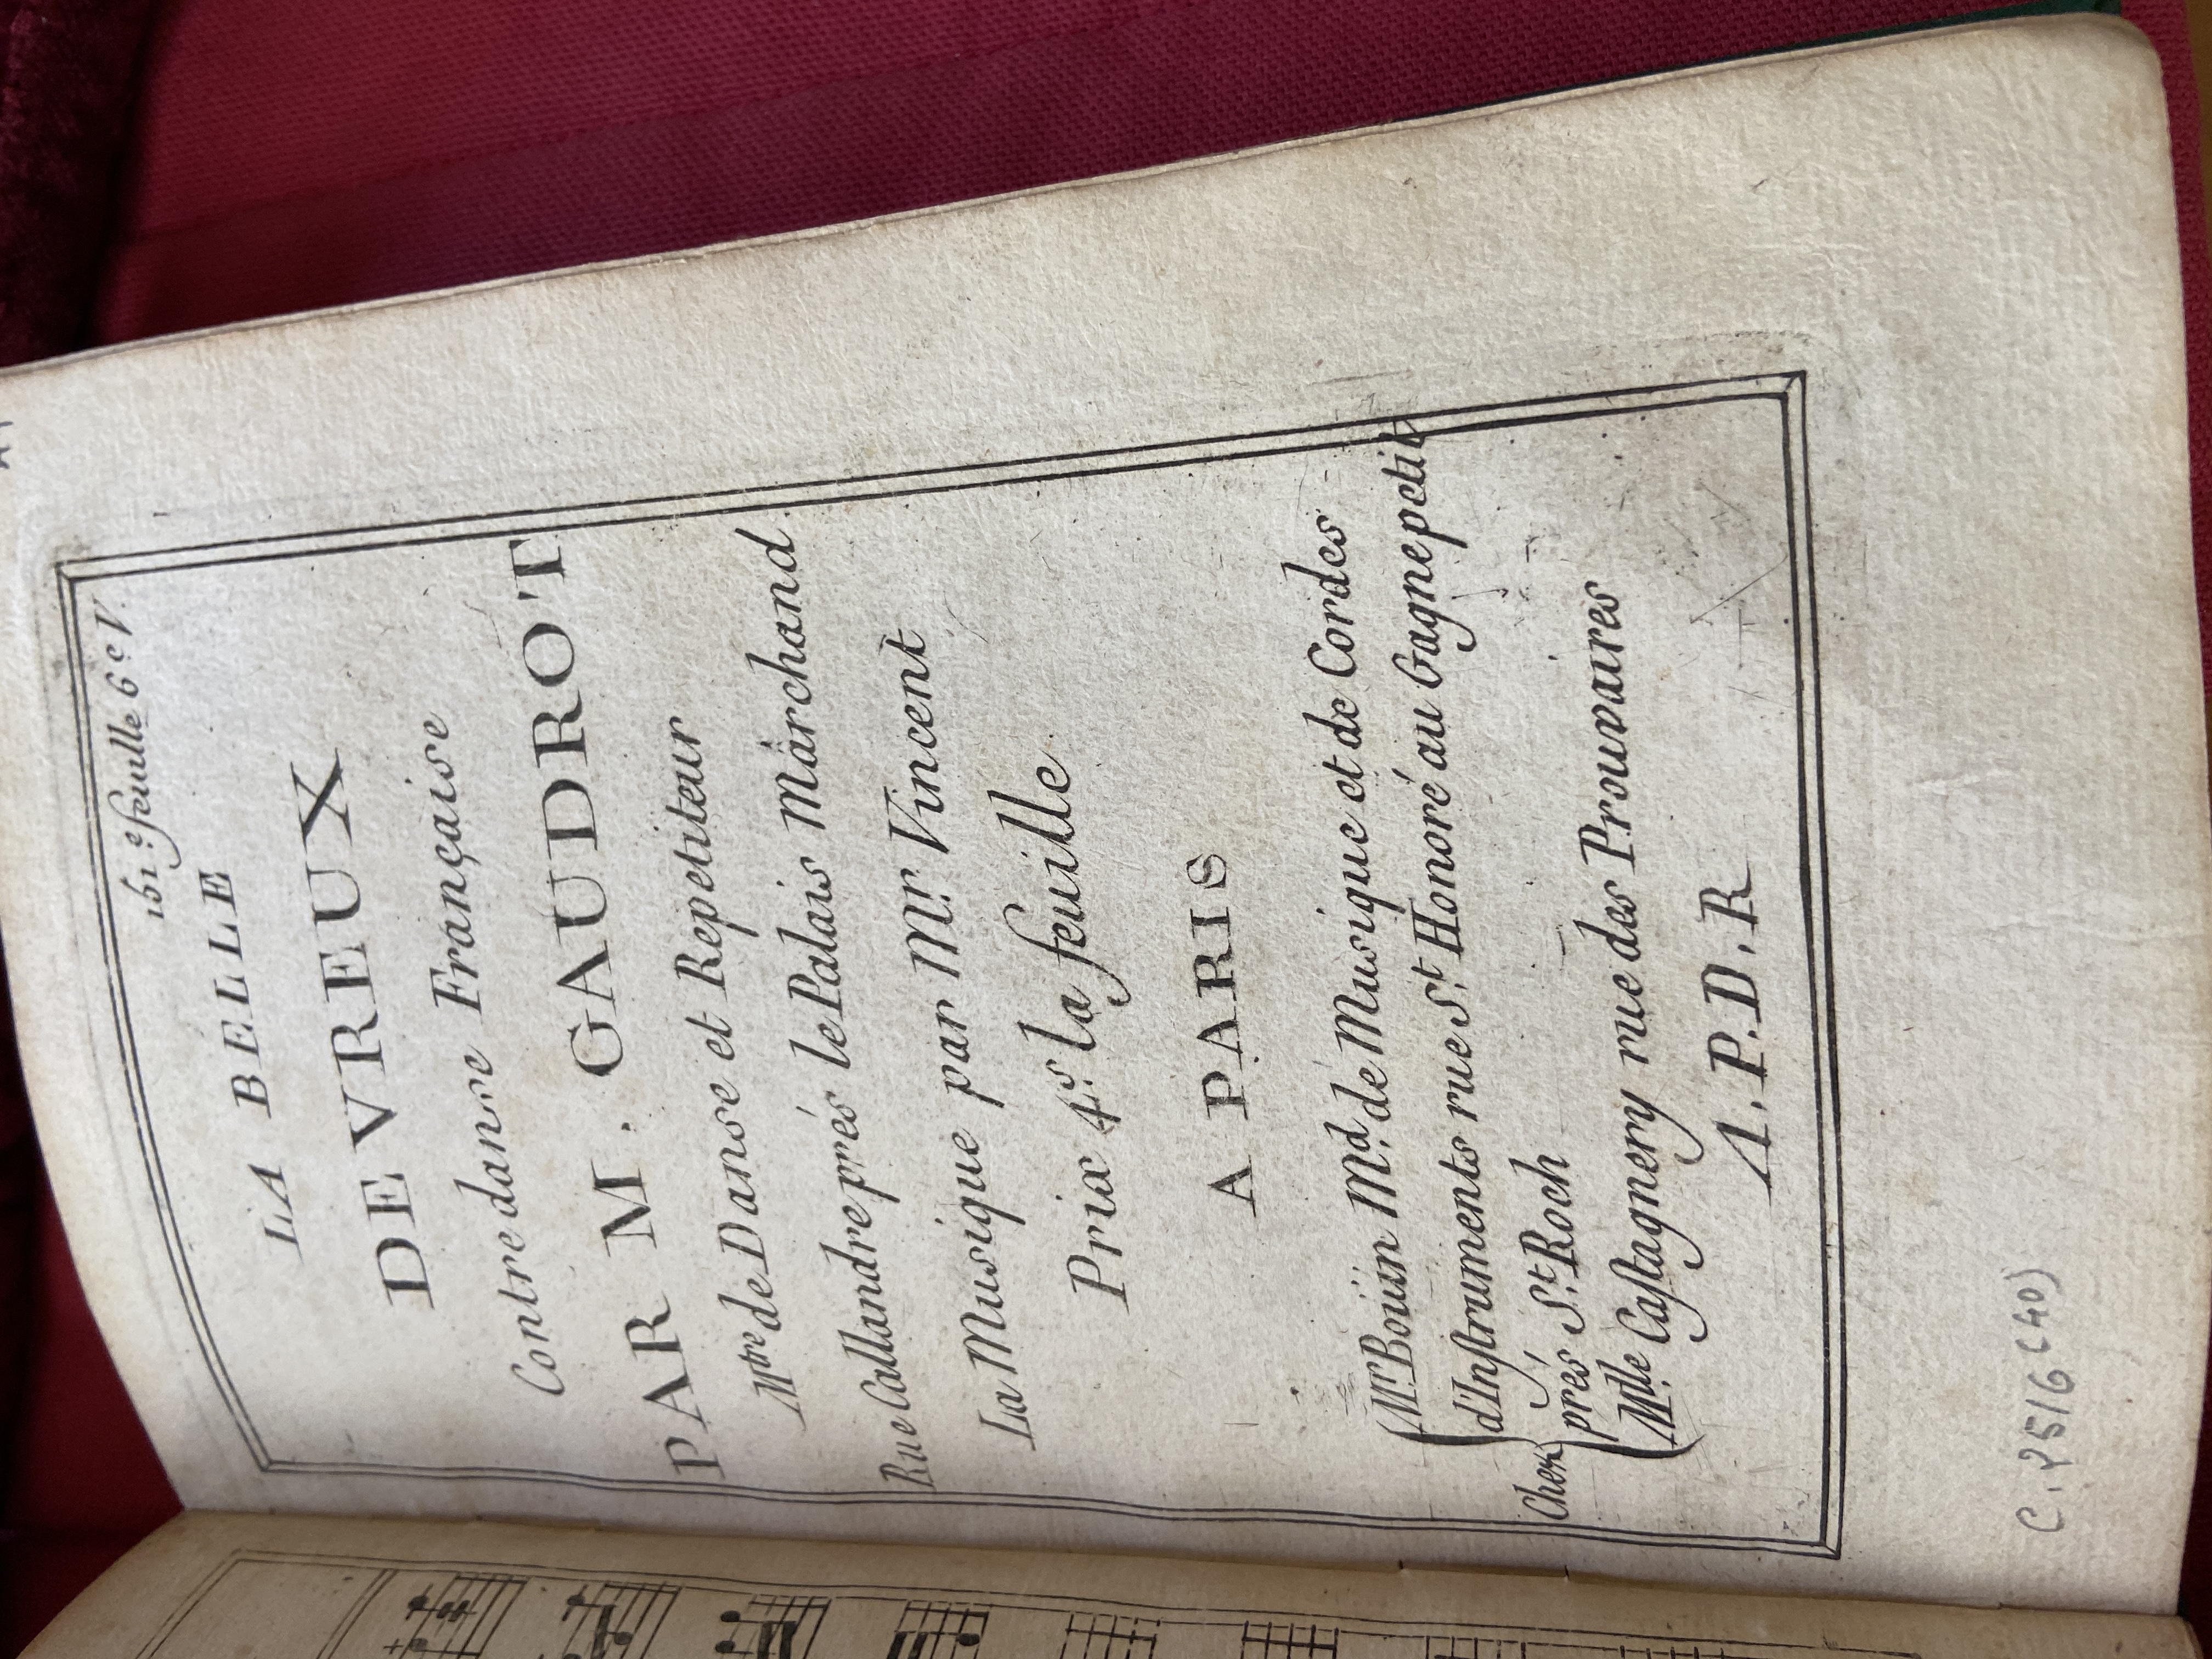 161.e feuille 6.e V.
LA BELLE
DEVREUX
Contredanse Française
PAR M. GAUDROT
M.tre de Danse et Repetiteur
Rue Callandre prés le Palais Marchand
La Musique par M.r Vincent
Prix 4.s la feuille
A PARIS
Chez
M.r Boüin M.d de Musique et de Cordes
d'Instruments rue S.t Honoré au Gagne petit
prés S.t Roch
M.lle Castagnery rue des Prouvaires
A. P. D. R
C. Y516 (40)